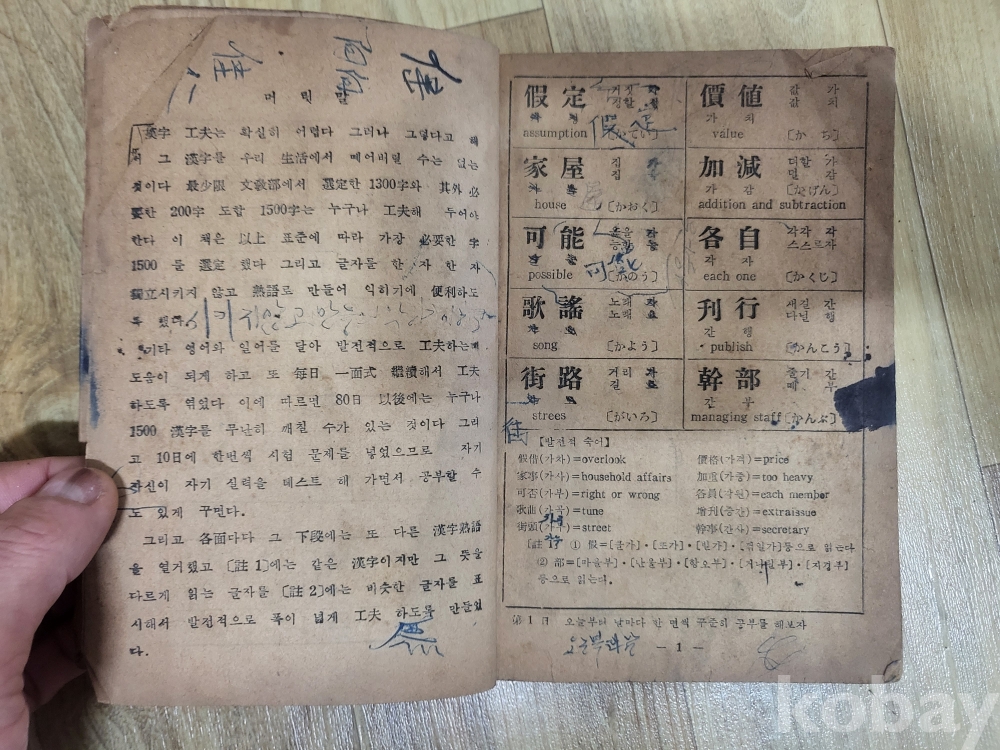 머 릿 말
漢字 工夫는 확실히 어렵다 그러나 그렇다고 해
서 그 漢字를 우리 生活에서 떼어버릴 수는 없는
것이다 最少限 文敎部에서 選定한 1300字와 其外 必
要한 200字 도합 1500字는 누구나 工夫해 두어야
한다 이 책은 以上 표준에 따라 가장 必要한 字
1500 를 選定 했다 그리고 글자를 한 자 한 자
獨立시키지 않고 熟語로 만들어 익히기에 便利하도
록 했다
기타 영어와 일어를 달아 발전적으로 工夫하는데
도움이 되게 하고 또 每日 一面式 繼續해서 工夫
하도록 엮었다 이에 따르면 80日 以後에는 누구나
1500 漢字를 무난히 깨칠 수가 있는 것이다 그리
고 10日에 한번씩 시험 문제를 넣었으므로 자기
자신이 자기 실력을 테스트 해 가면서 공부할 수
도 있게 꾸민다.
그리고 各面마다 그 下段에는 또 다른 漢字熟語
을 열거했고 〔註 1〕에는 같은 漢字이지만 그 뜻을
다르게 읽는 글자를 〔註 2〕에는 비슷한 글자를 표
시해서 발전적으로 폭이 넓게 工夫 하도록 만들었
다.
假定 거짓 가
assumption
假定
價値 값 가
값 치
가 치
value 〔か ち〕
家屋 집 가
집
house 〔かおく〕
加減 더할 가
덜 감
가 감
addition and subtraction 〔かげん〕
可能
possible 〔かのう〕
各自 각자 각
스스로 자
각 자
each one 〔かくじ〕
歌謠 노래 가
노래 요
song 〔かよう〕
刊行 새길 간
다닐 행
간 행
publish 〔かんこう〕
街路 거리 가
길 로
strees 〔がいろ〕
幹部 줄기 간
떼 부
간 부
managing staff 〔かんぶ〕
【발전적 숙어】
假借(가차)=overlook
家事(가사)=household affairs
可否(가부)=right or wrong
歌曲(가곡)=tune
街頭(가두)=street
價格(가격)=price
加重(가중)=too heavy
各員(각원)=each member
增刊(증간)=extraissue
幹事(간사)=secretary
〔註 1〕 ① 假=
등으로 읽는다
② 部=
등으로 읽는다.
第 1 日 오늘부터 날마다 한 면씩 꾸준히 공부를 해보자
— 1 —
kobay